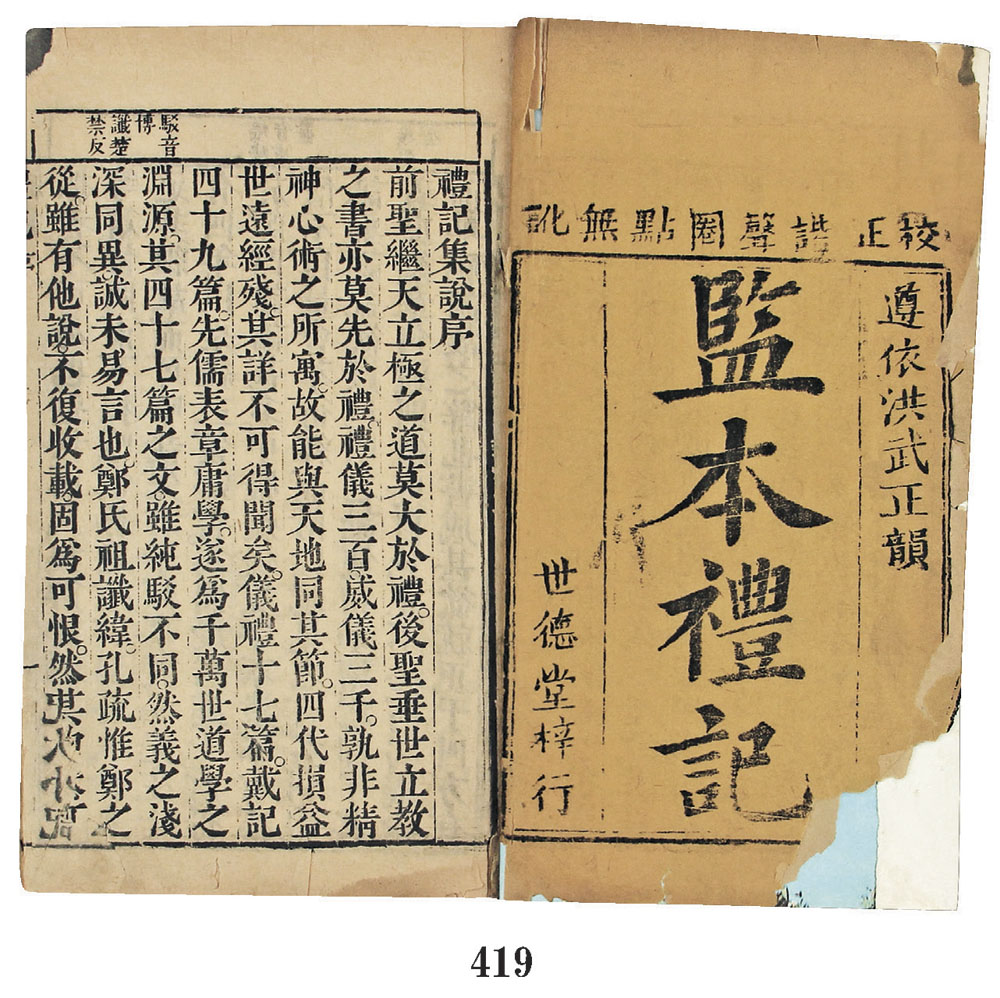 校正諧聲圈點無訛
遵依洪武正韻
監本禮記
世德堂梓行
駁音
博
讖楚
禁反
禮記集說序
前聖繼天立極之道莫大於禮。後聖垂世立教
之書亦莫先於禮。禮儀三百威儀三千。孰非精
神心術之所寓。故能與天地同其節。四代損益
世遠經殘。其詳不可得聞矣。儀禮十七篇。戴記
四十九篇。先儒表章庸學。遂爲千萬世道學之
淵源。其四十七篇之文。雖純駁不同。然義之淺
深同異。誠未易言也。鄭氏祖讖緯。孔疏惟鄭之
從。雖有他說。不復收載。固爲可恨。然其
419